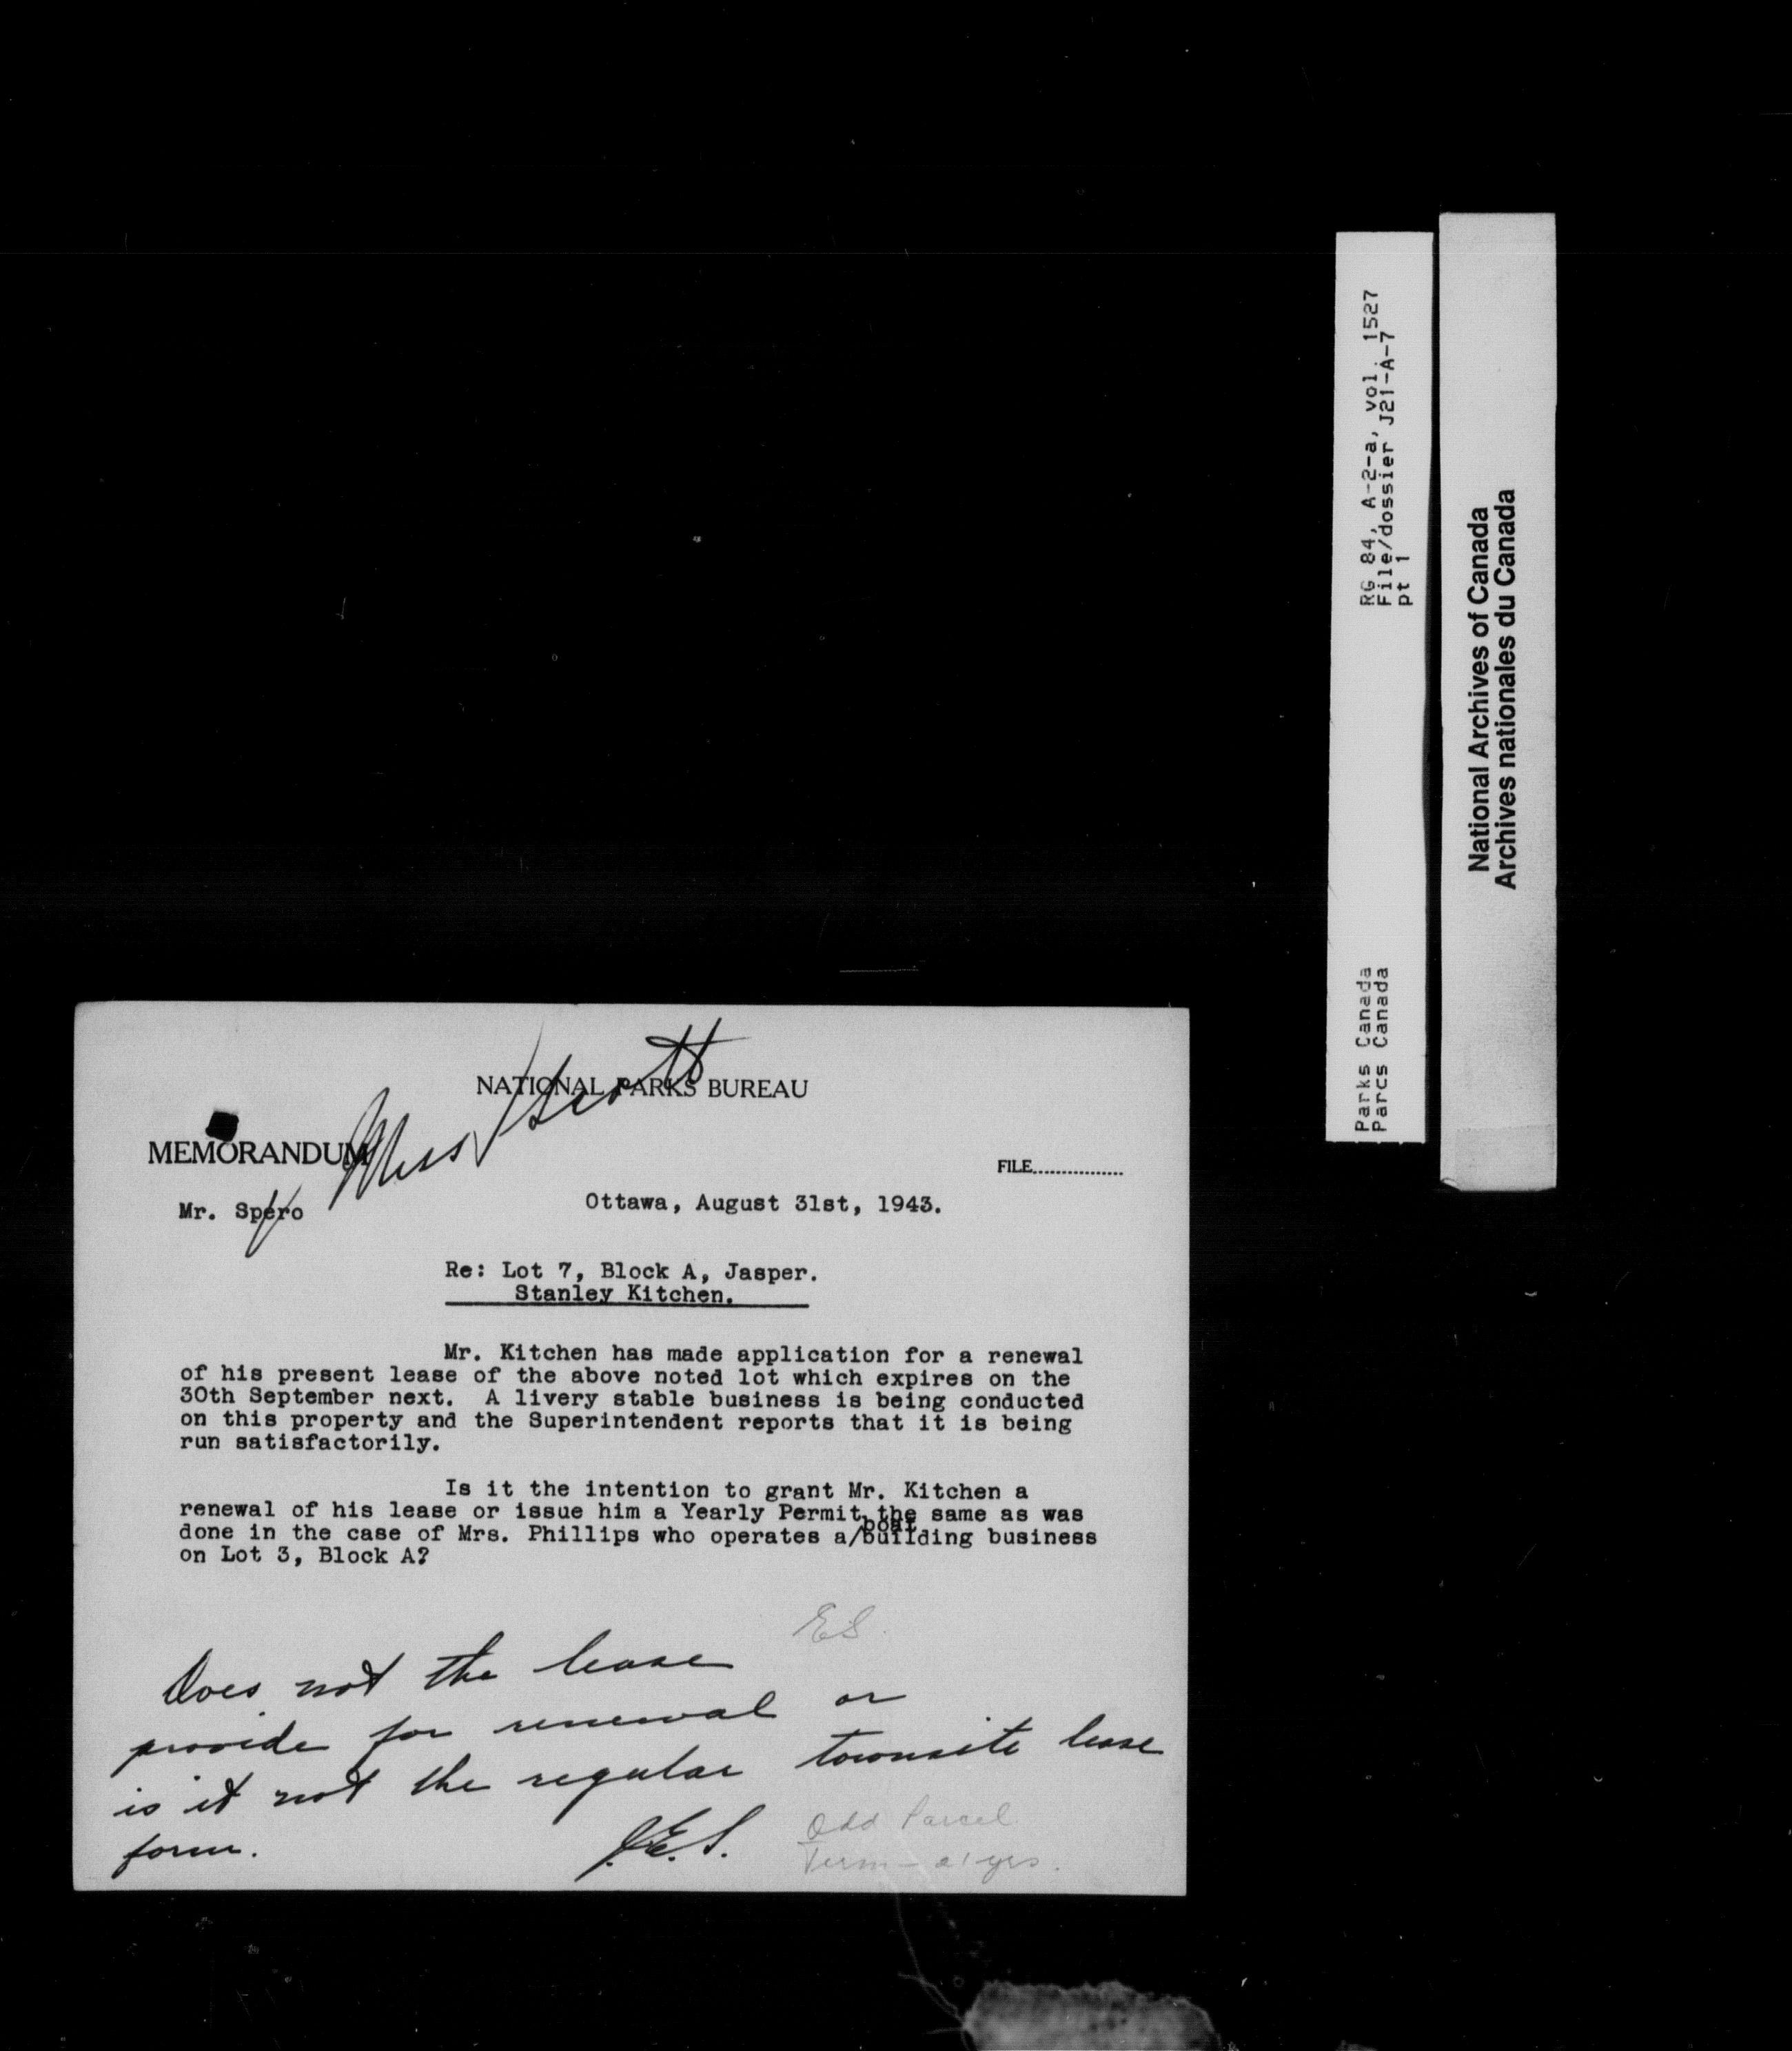 NATIONAL PARKS BUREAU
Miss Scott
MEMORANDUM
FILE................
Mr. Spero
Ottawa, August 31st, 1943.
Re: Lot 7, Block A, Jasper.
Stanley Kitchen.
Mr. Kitchen has made application for a renewal
of his present lease of the above noted lot which expires on the
30th September next. A livery stable business is being conducted
on this property and the Superintendent reports that it is being
run satisfactorily.
Is it the intention to grant Mr. Kitchen a
renewal of his lease or issue him a Yearly Permit, the same as was
boat
done in the case of Mrs. Phillips who operates a/building business
on Lot 3, Block A?
E.S.
Does not the lease
provide for renewal or
is it not the regular townsite lease
form.
J.E.S.
Odd Parcel
Term – 21 yrs.
RG 84, A-2-a, vol. 1527
File/dossier J21-A-7
pt 1
Parks Canada
Parcs Canada
National Archives of Canada
Archives nationales du Canada